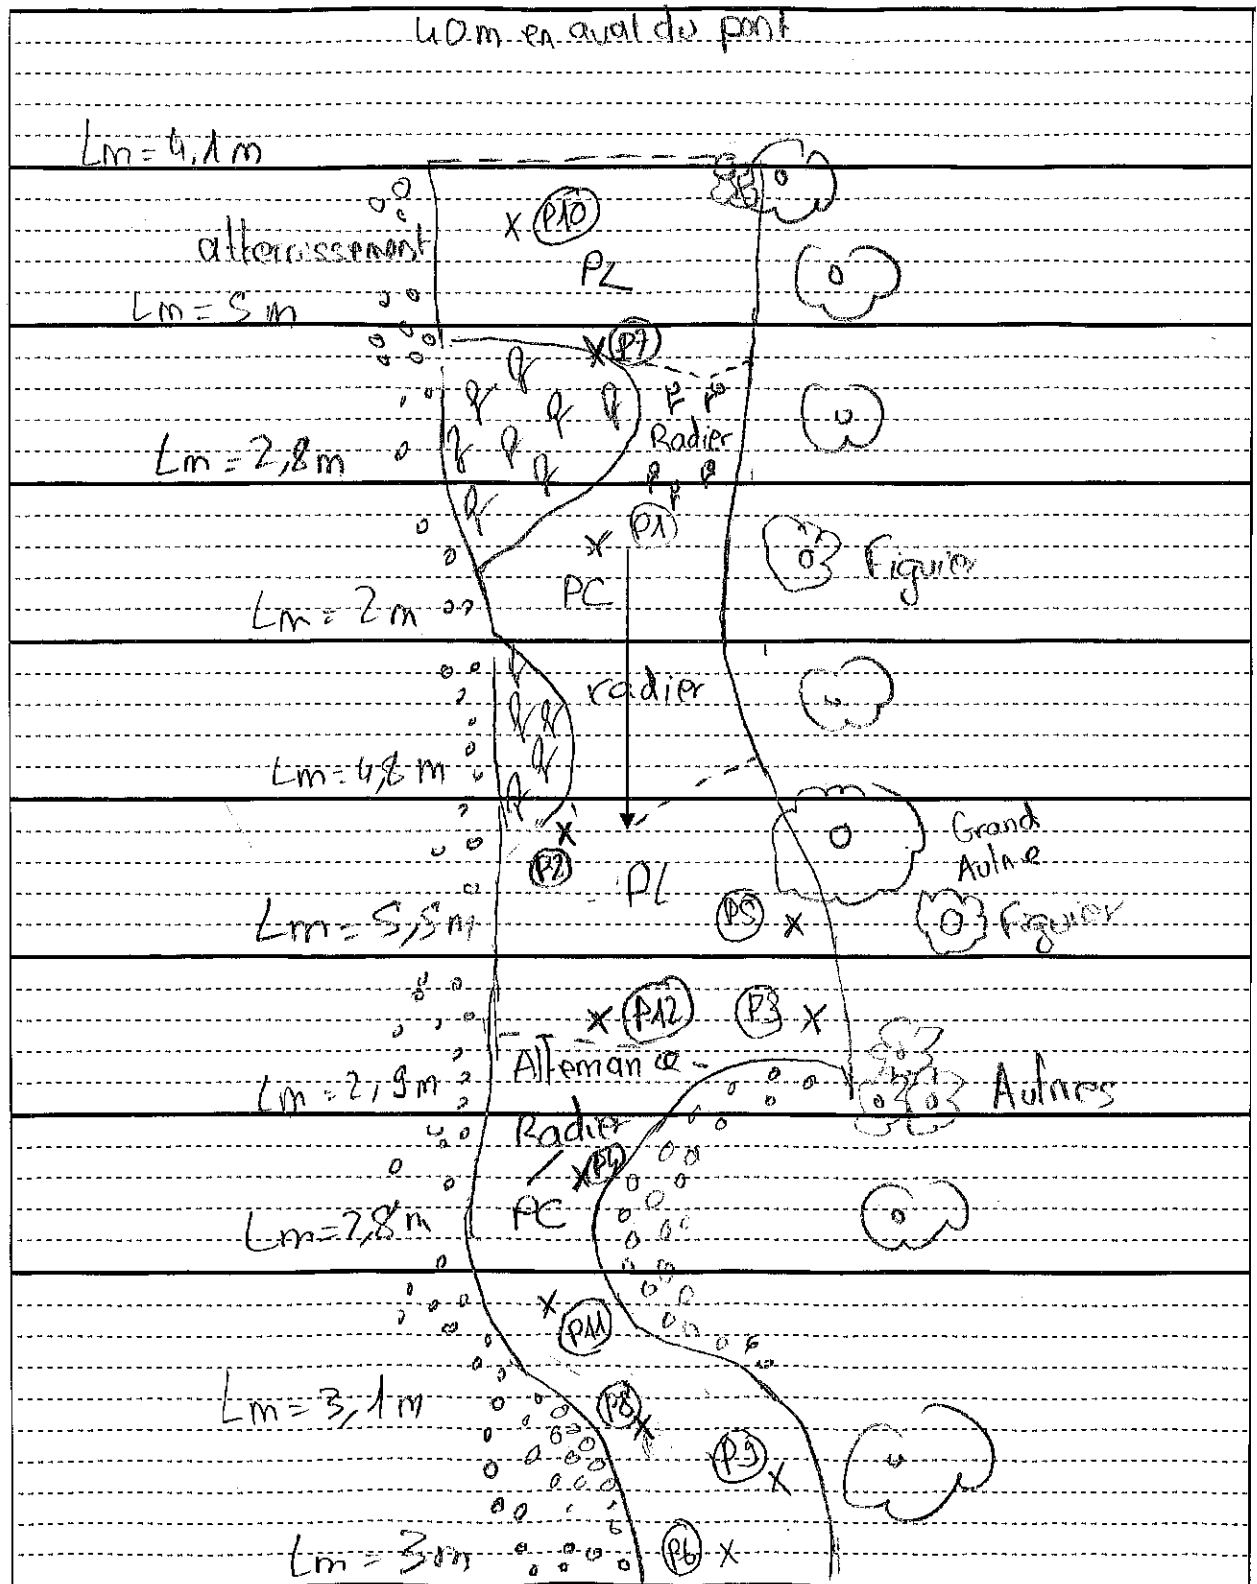 40m en aval du pont
Lm = 4,1m
P10
atterrissement
PL
Lm = 5m
P7
Radier
Lm = 2,8m
P1
Figuier
PC
Lm = 2m
radier
Lm = 4,8m
Grand
Aulne
P2
PL
P5
Figuier
Lm = 5,5m
P12
P3
Alternance
Lm = 2,9m
Aulnes
Radier
/
P4
PC
Lm = 2,8m
P11
Lm = 3,1m
P8
P9
Lm = 3m
P6